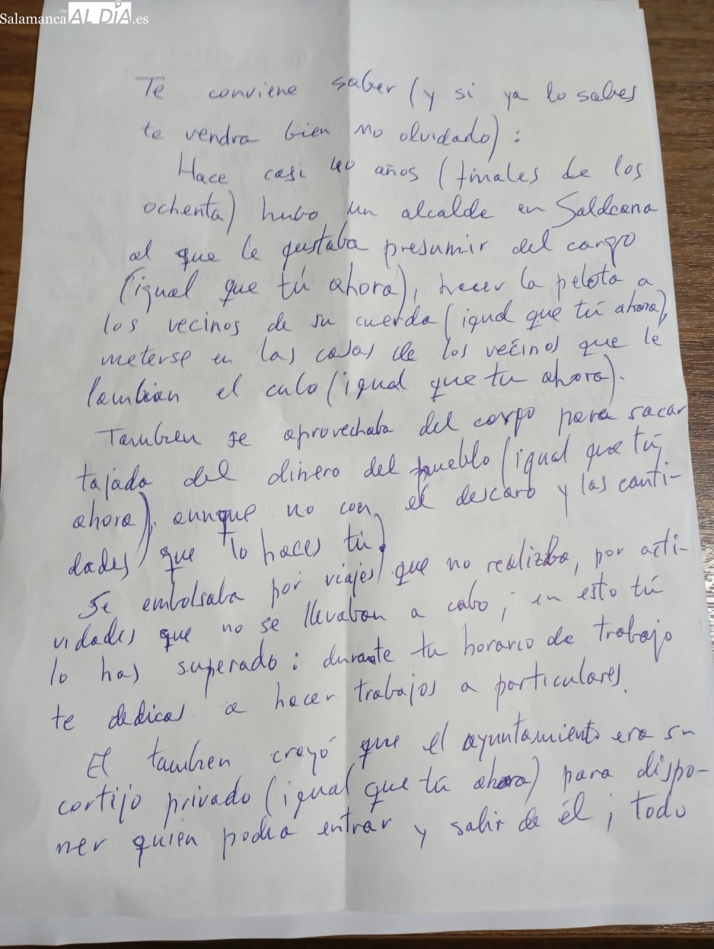 Salamanca AL DÍA.es
Te conviene saber (y si ya lo sabes
te vendra bien no olvidado) :
Hace casi 40 años (finales de los
ochenta) hubo un alcalde en Saldeana
al que le gustaba presumir del cargo
(igual que tú ahora), hacer la pelota a
los vecinos de su cuerda (igual que tú ahora),
meterse en las casas de los vecinos que le
lambian el culo (igual que tu ahora).
Tambien se aprovechaba del cargo para sacar
tajada del dinero del pueblo (igual que tú
ahora), aunque no con el descaro y las canti-
dades que lo haces tú.
Se embolsaba por viajes que no realizba, por acti-
vidades que no se llevaban a cabo; en esto tú
lo has superado: durante tu horario de trabajo
te dedicas a hacer trabajos a particulares.
El tambien creyó que el ayuntamiento era su
cortijo privado (igual que tú ahora) para dispo-
ner quien podia entrar y salir de él; todo